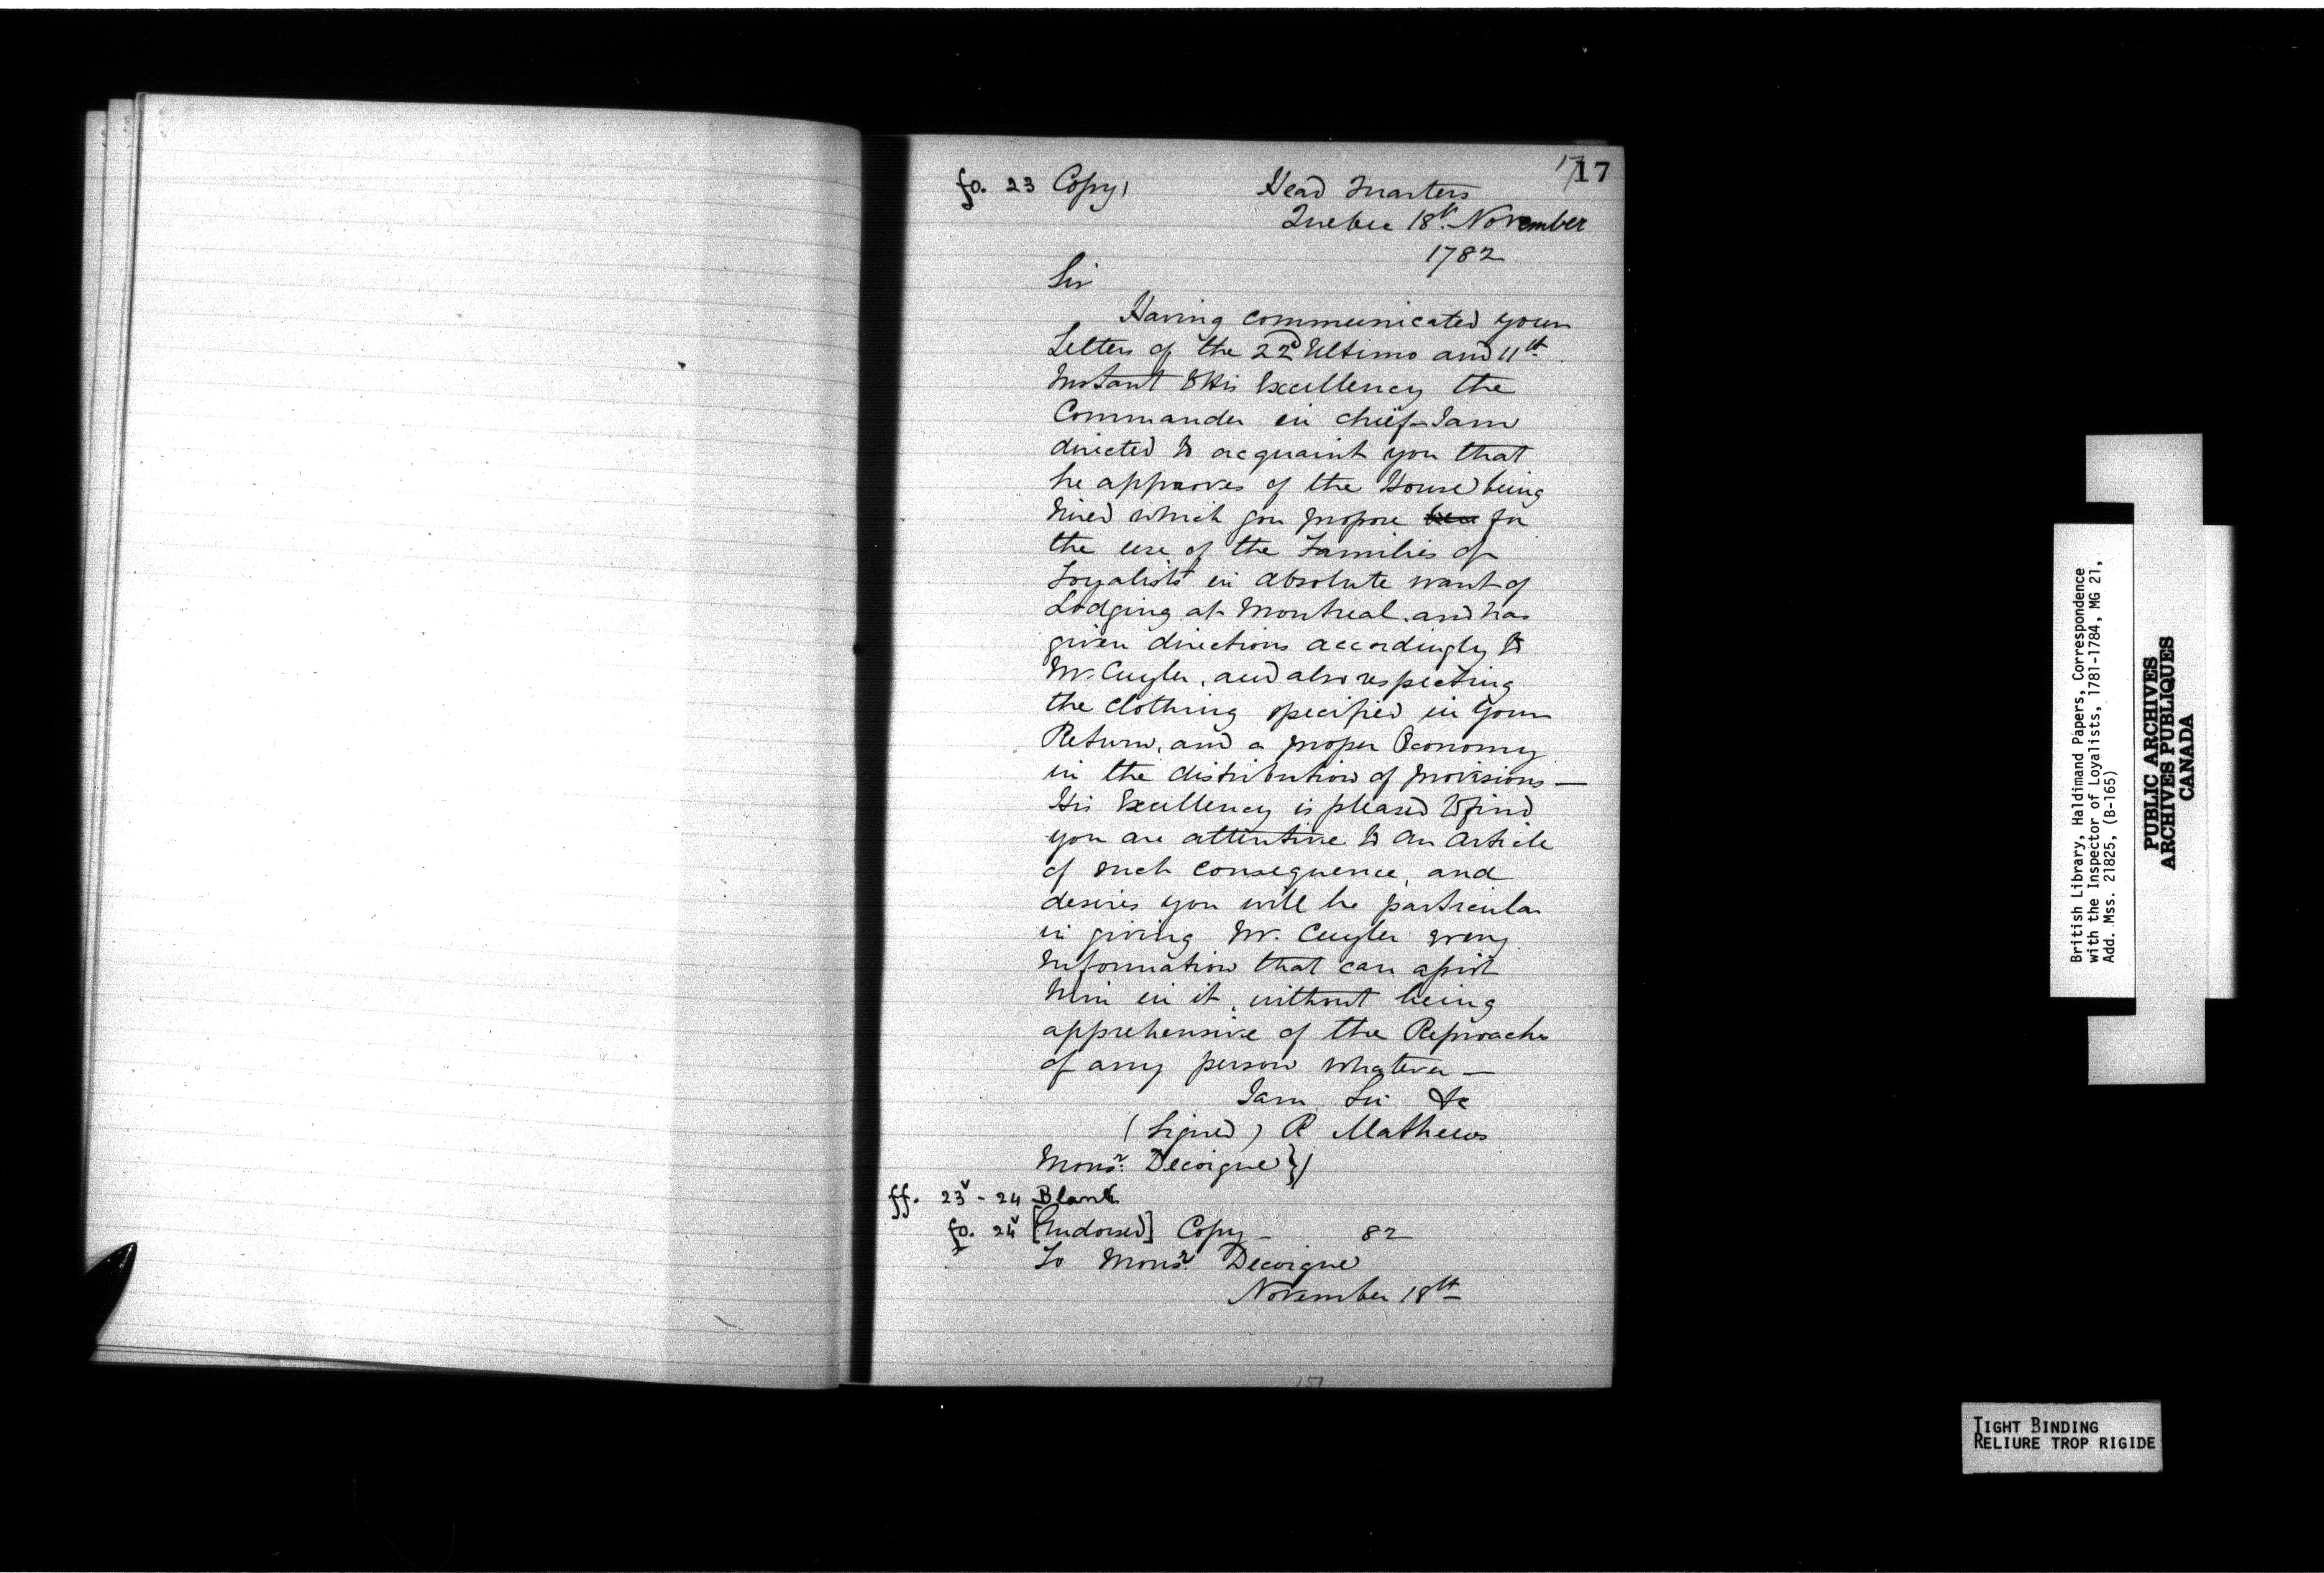 17/17
fo. 23 Copy) Head Quarters
Quebec 18th. November
1782
Sir
Having communicated your
Letters of the 22d Ultimo and 11th
Instant to His Excellency the
Commander in chief - I am
directed to acquaint you that
he approves of the House being
hired which you propose for
the use of the Families of
Loyalists in absolute want of
Lodging at Montreal. and has
given directions accordingly to
Mr. Cuyler, and also respecting
the clothing specified in your
Return, and a proper Oeconomy
in the distribution of provisions —
His Excellency is pleased to find
you are attentive to an article
of such consequence, and
desires you will be particular
in giving Mr. Cuyler every
Information that can assist
him in it, without being
apprehensive of the Reproaches
of any person whatever —
I am Sir &c
(Signed) R Mathews
Monsr. Decoigne })
ff. 23v - 24 Blank
fo. 24v [Endorsed] Copy - 82
To Monsr. Decoigne
November 18th
British Library, Haldimand Papers, Correspondence
with the Inspector of Loyalists, 1781-1784, MG 21,
Add. Mss. 21825, (B-165)
PUBLIC ARCHIVES
ARCHIVES PUBLIQUES
CANADA
TIGHT BINDING
RELIURE TROP RIGIDE